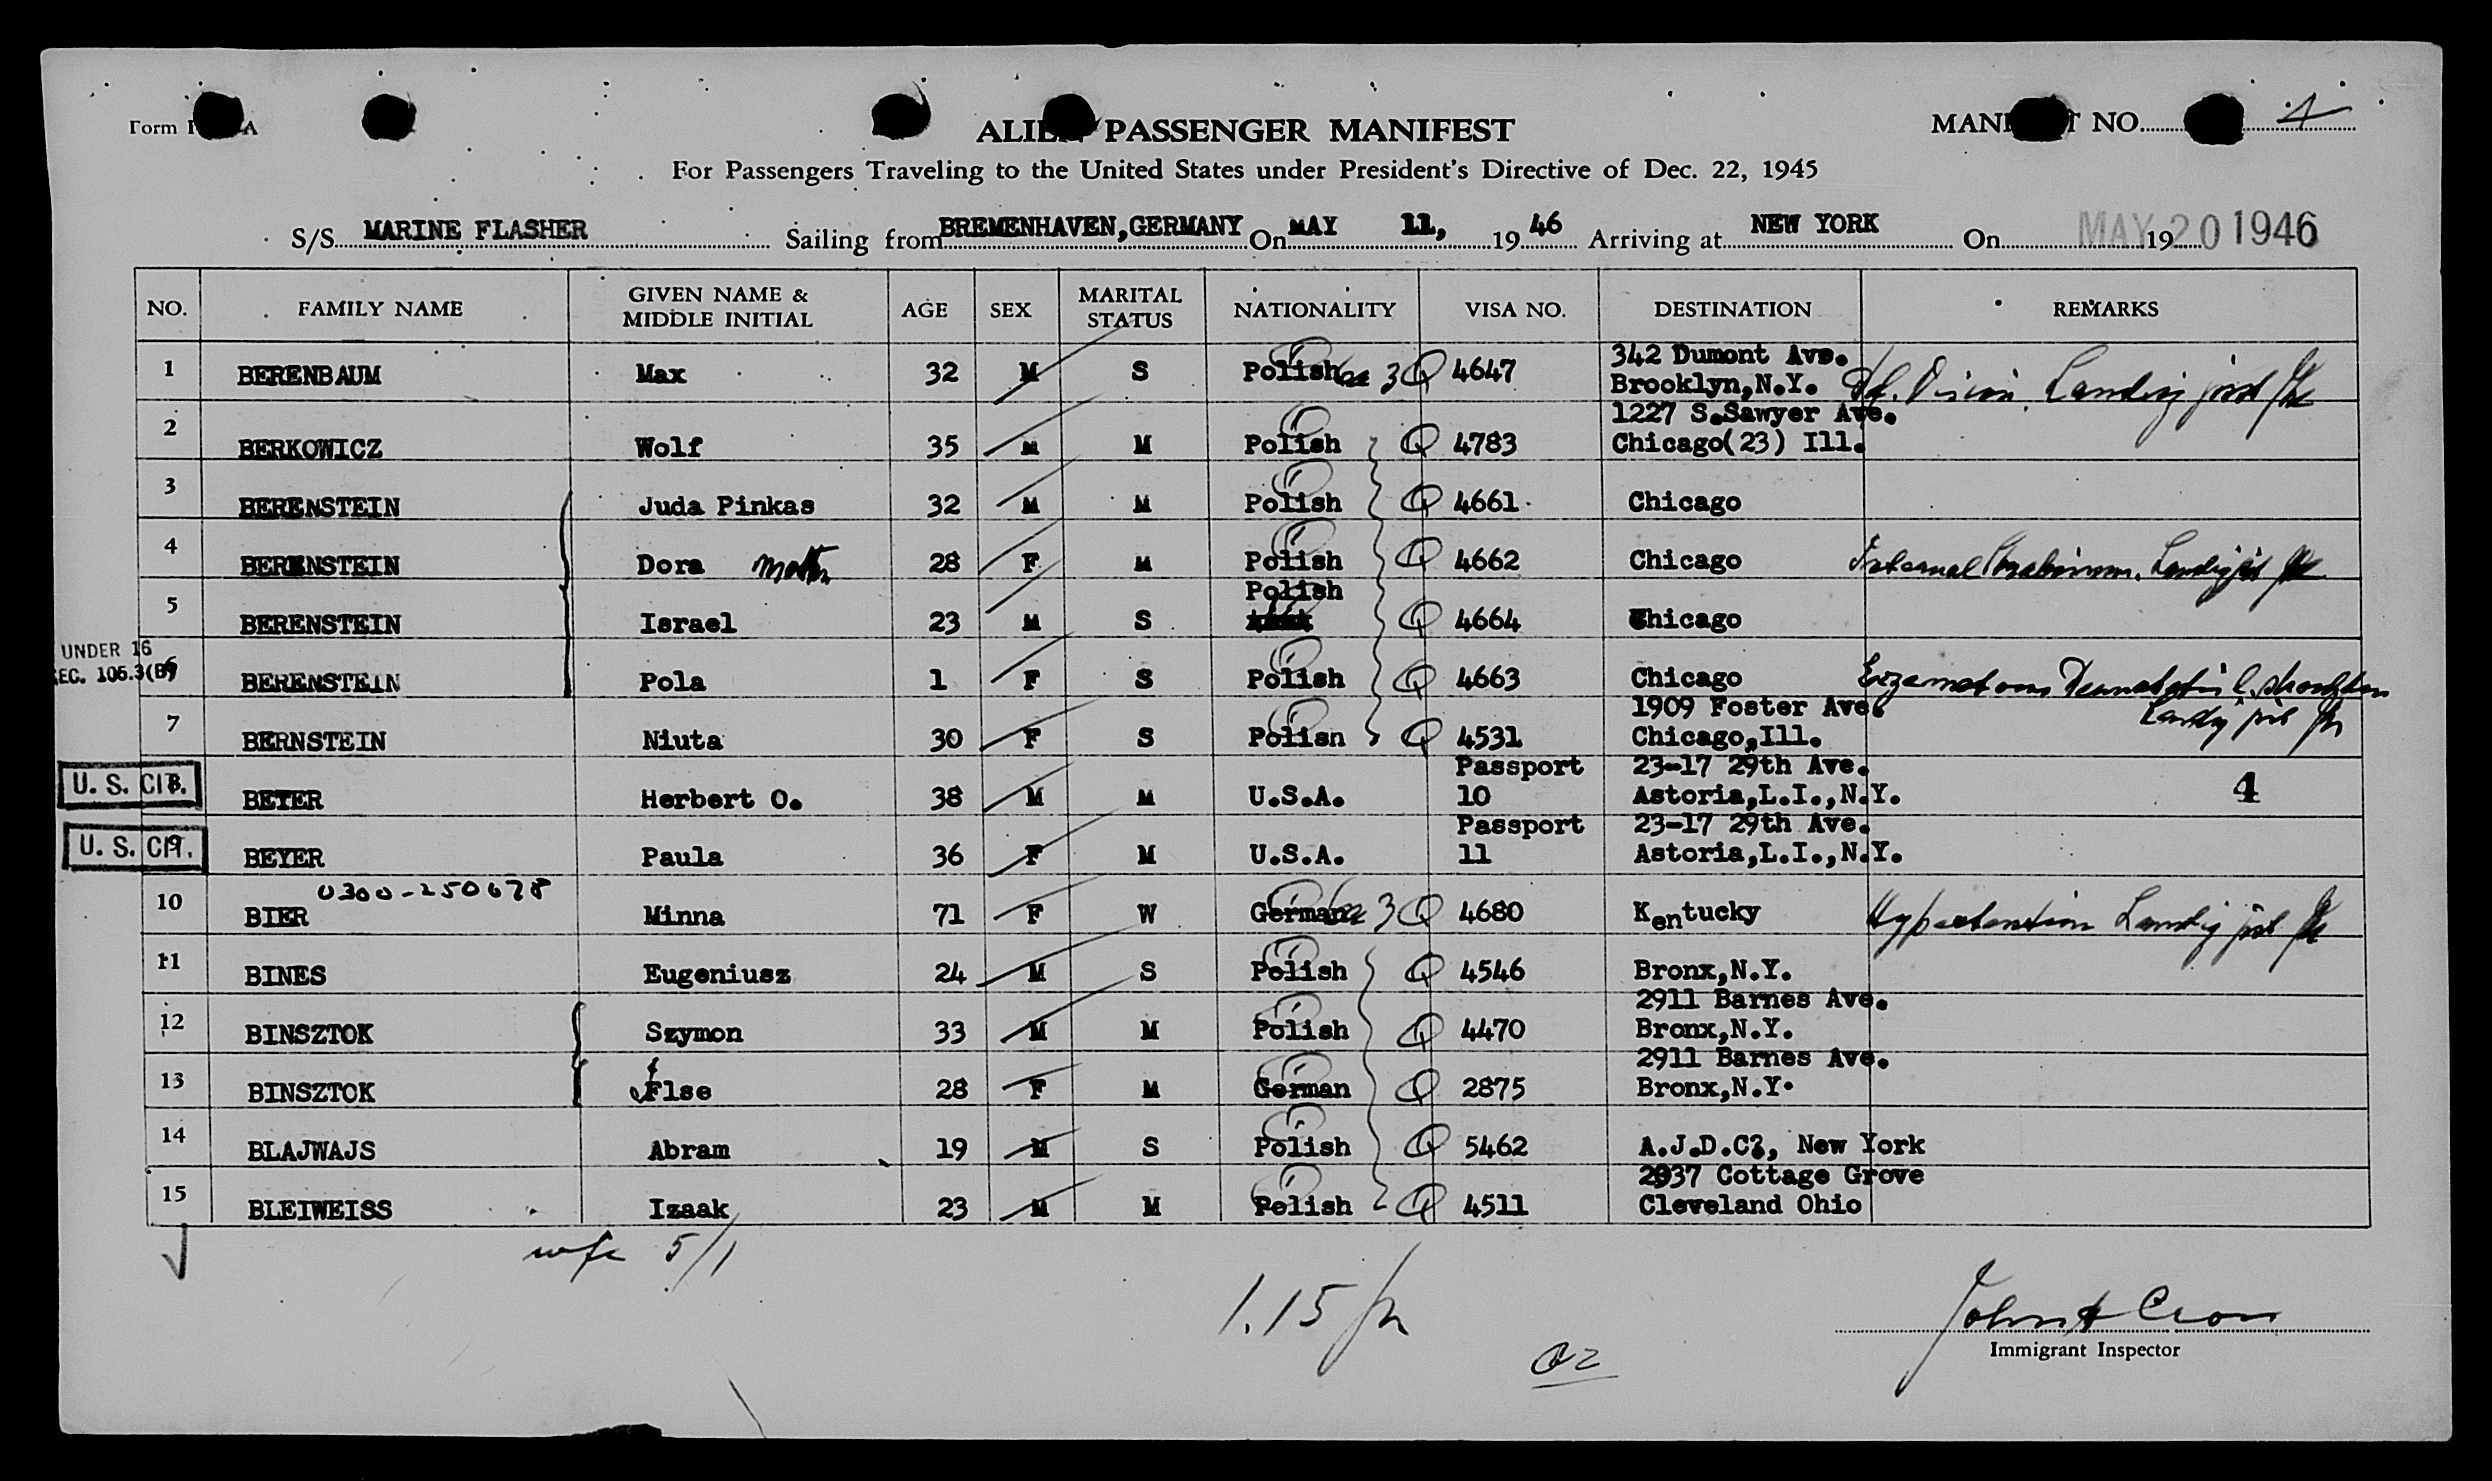 ALIEN PASSENGER MANIFEST
MANIFEST NO. 4
Form I A
For Passengers Traveling to the United States under President's Directive of Dec. 22, 1945
S/S MARINE FLASHER Sailing from BREMENHAVEN,GERMANY On MAY 11, 19 46 Arriving at NEW YORK On MAY 20 1946 19
NO. FAMILY NAME GIVEN NAME & MIDDLE INITIAL AGE SEX MARITAL STATUS NATIONALITY VISA NO. DESTINATION REMARKS
342 Dumont Ave.
1 BERENBAUM Max 32 M S Polish 3 Q 4647 Brooklyn,N.Y. Landing
1227 S.Sawyer Ave.
2 BERKOWICZ Wolf 35 M M Polish Q 4783 Chicago(23) Ill.
3 BERENSTEIN Juda Pinkas 32 M M Polish Q 4661 Chicago
4 BERENSTEIN Dora 28 F M Polish Q 4662 Chicago Internal
Polish
5 BERENSTEIN Israel 23 M S Q 4664 Chicago
UNDER 16
SEC. 105.3(B)
6 BERENSTEIN Pola 1 F S Polish Q 4663 Chicago
1909 Foster Ave.
7 BERNSTEIN Niuta 30 F S Polisn Q 4531 Chicago,Ill.
Passport 23-17 29th Ave.
U. S. CIT. 8 BEYER Herbert O. 38 M M U.S.A. 10 Astoria,L.I.,N.Y. 4
Passport 23-17 29th Ave.
U. S. CIT. 9 BEYER Paula 36 F M U.S.A. 11 Astoria,L.I.,N.Y.
0300-250678
10 BIER Minna 71 F W German 3 Q 4680 Kentucky Hypertension Landing
11 BINES Eugeniusz 24 M S Polish Q 4546 Bronx,N.Y.
2911 Barnes Ave.
12 BINSZTOK Szymon 33 M M Polish Q 4470 Bronx,N.Y.
2911 Barnes Ave.
13 BINSZTOK Flse 28 F M German Q 2875 Bronx,N.Y.
14 BLAJWAJS Abram 19 M S Polish Q 5462 A.J.D.C., New York
2937 Cottage Grove
15 BLEIWEISS Izaak 23 M M Polish Q 4511 Cleveland Ohio
wfe 5/1
1.15
John A Cron
Immigrant Inspector